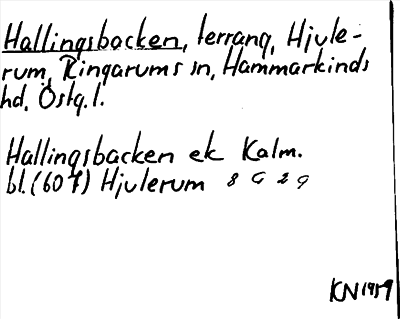 Hallingsbacken, terräng, Hjule-
rum, Ringarums sn, Hammarkinds
hd, Östg. l.
Hallingsbacken ek Kalm.
bl. (607) Hjulerum 8 G 2 g
KN 1959